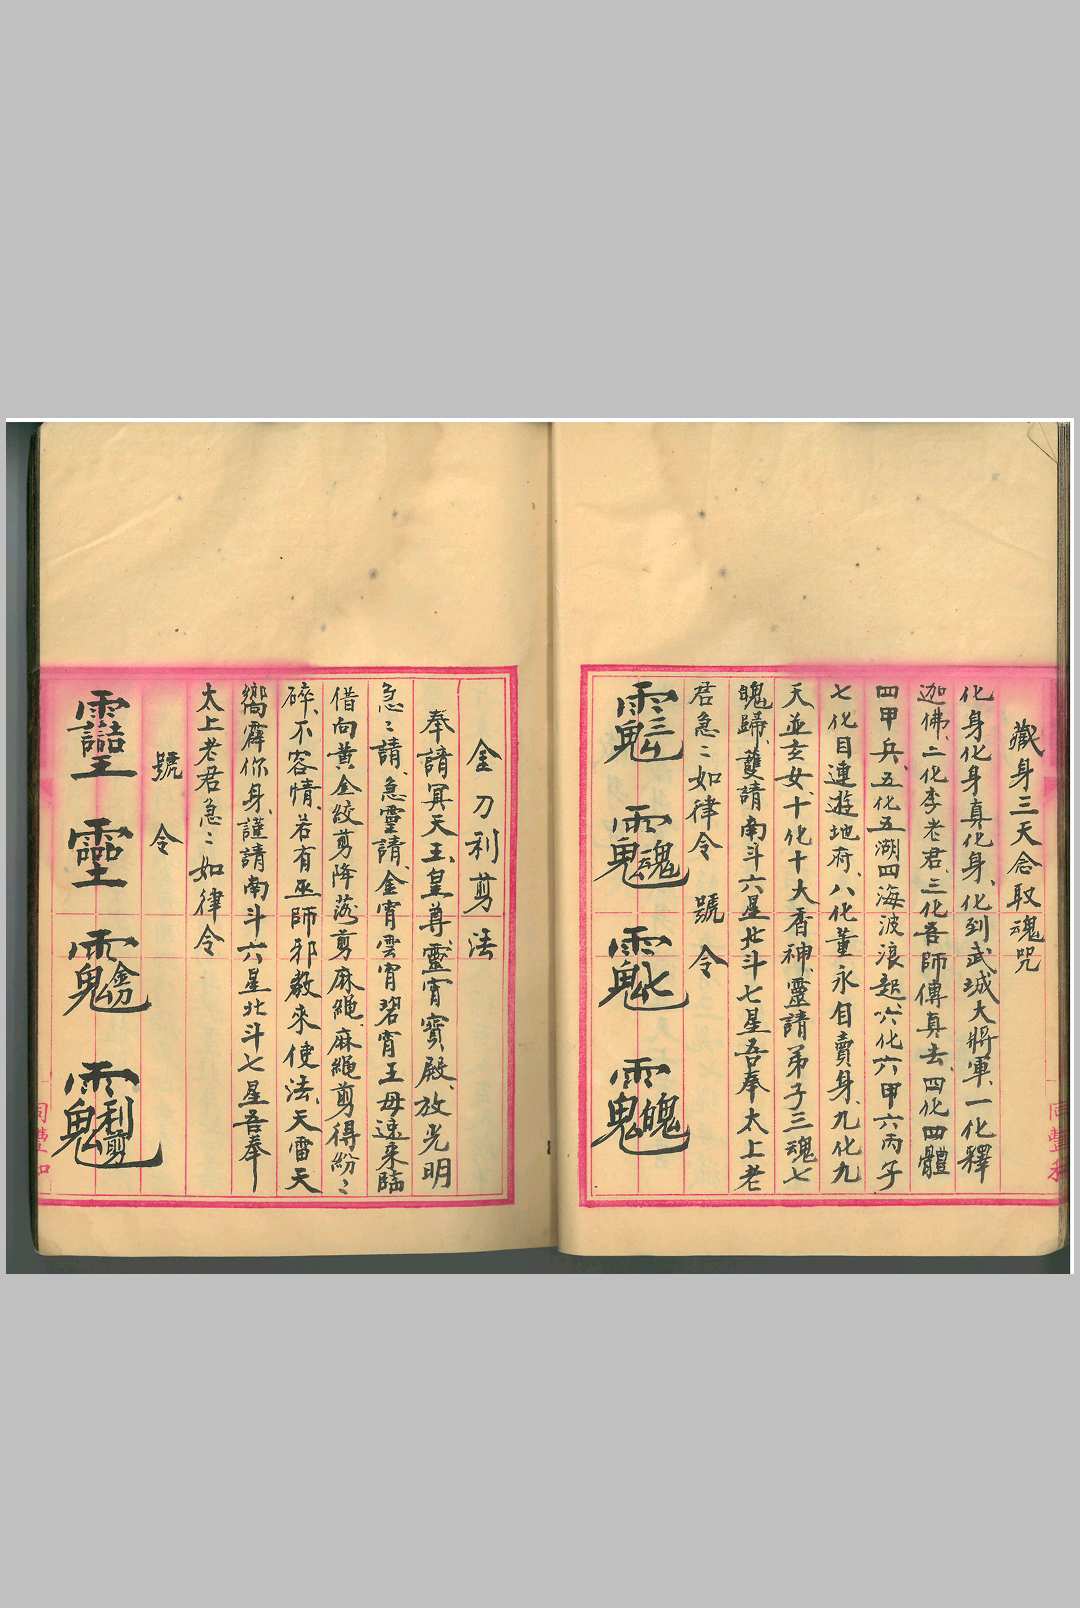 藏身三天念取魂咒
化身化身真化身、化到武城大將軍、一化釋
迦佛、二化李老君、三化吾師傳真去、四化四體
四甲兵、五化五湖四海波浪起、六化六甲六丙子
七化目連遊地府、八化董永自賣身、九化九
天並玄女、十化十大香神、靈請弟子三魂七
魄歸、護請南斗六星北斗七星吾奉太上老
君急〻如律令 號令
金刀利剪法
奉請冥天玉皇尊、靈宵寶殿、放光明
急〻請、急靈請、金宵雲宵碧宵王母速來臨
借向黃金絞剪降落剪麻繩、麻繩剪得紛〻
碎、不容情、若有巫師邪教來使法、天雷天
嚮霹你身、謹請南斗六星北斗七星吾奉
太上老君急〻如律令
號令